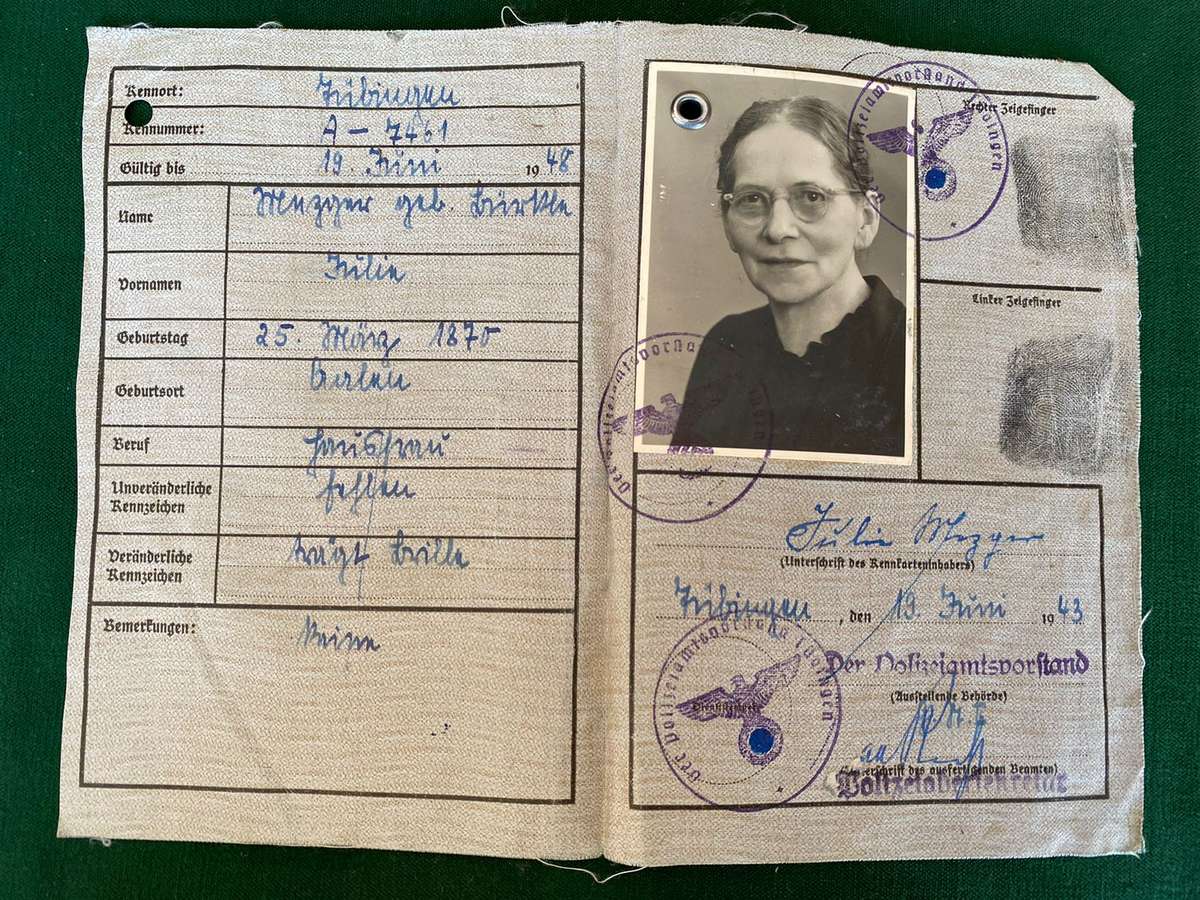 Kennort: Tübingen
Kennummer: A – 7461
Gültig bis 19. Juni 1948
Name Mezger geb. Bürkle
Vornamen Julie
Geburtstag 25. März 1870
Geburtsort Aalen
Beruf Hausfrau
Unveränderliche Kennzeichen fehlen
Veränderliche Kennzeichen trägt Brille
Bemerkungen: Keine
Rechter Zeigefinger
Linker Zeigefinger
Der Polizeiamtsvorstand Tübingen
Der Polizeiamtsvorstand Tübingen
Julie Mezger
(Unterschrift des Kennkarteninhabers)
Tübingen, den 19. Juni 1943
Der Polizeiamtsvorstand
(Ausstellende Behörde)
Der Polizeiamtsvorstand Tübingen
Dienststempel
(Unterschrift des ausfertigenden Beamten)
Polizeiobersekretär